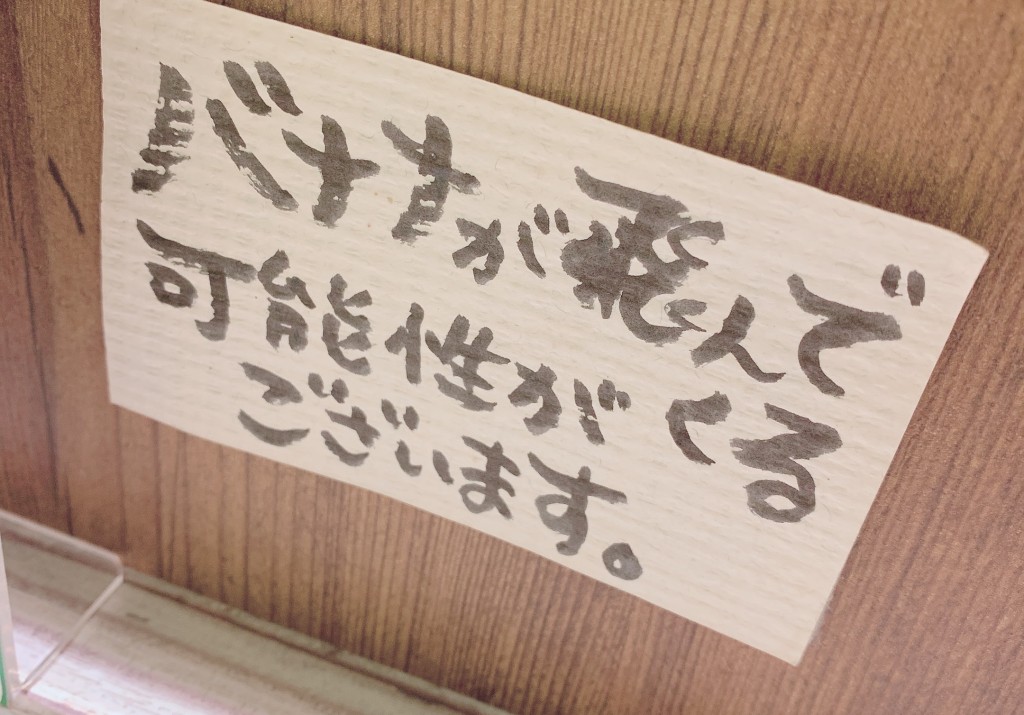 バナナが飛んでくる
可能性が
ございます。